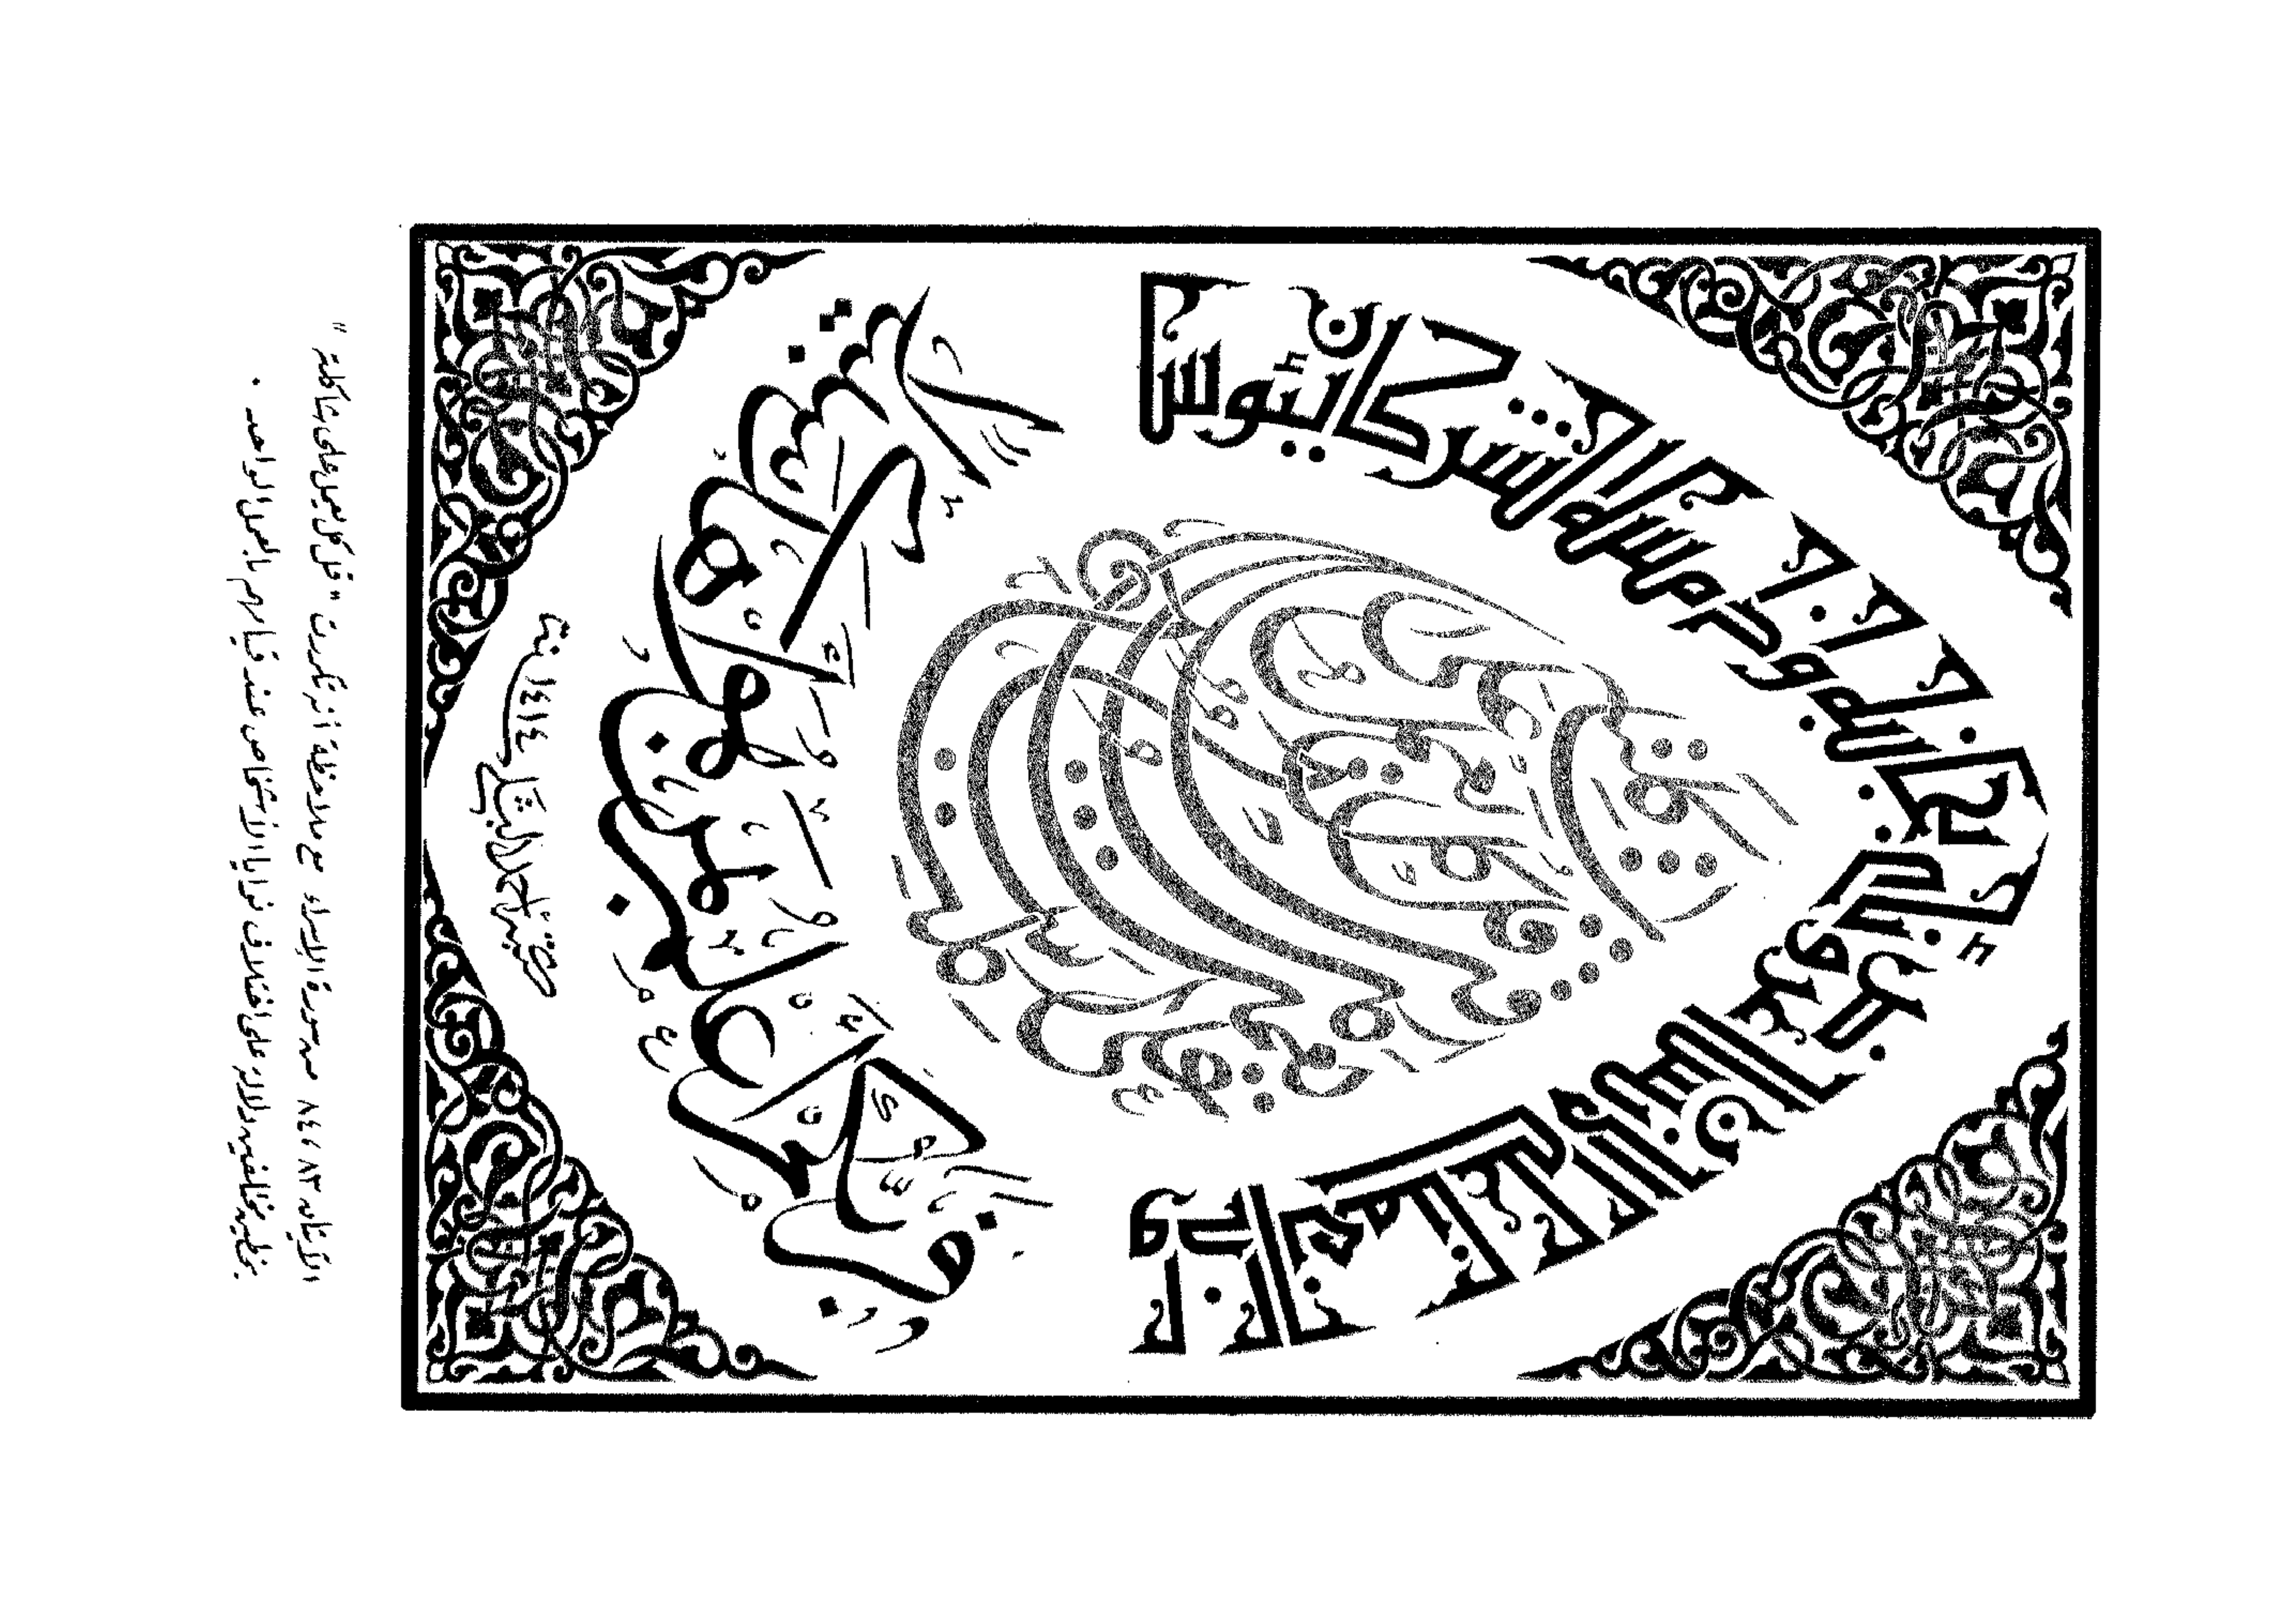 وإذا أنعمنا على الإنسان أعرض ونئا بجانبه وإذا مسه الشر كان يئوسا
قل كل يعمل على شاكلته
فَرَبُّكُمْ أَعْلَمُ بِمَنْ هُوَ أَهْدَى سَبِيلًا
١٤١٤
الآيتان ٨٣ ، ٨٤ سورة الإسراء مع ملاحظة تكررت " قل كل يعمل على شاكلته "
بخطين مختلفين دلالة على اختلاف نوايا الأشخاص عند قيامهم بالعمل الواحد .